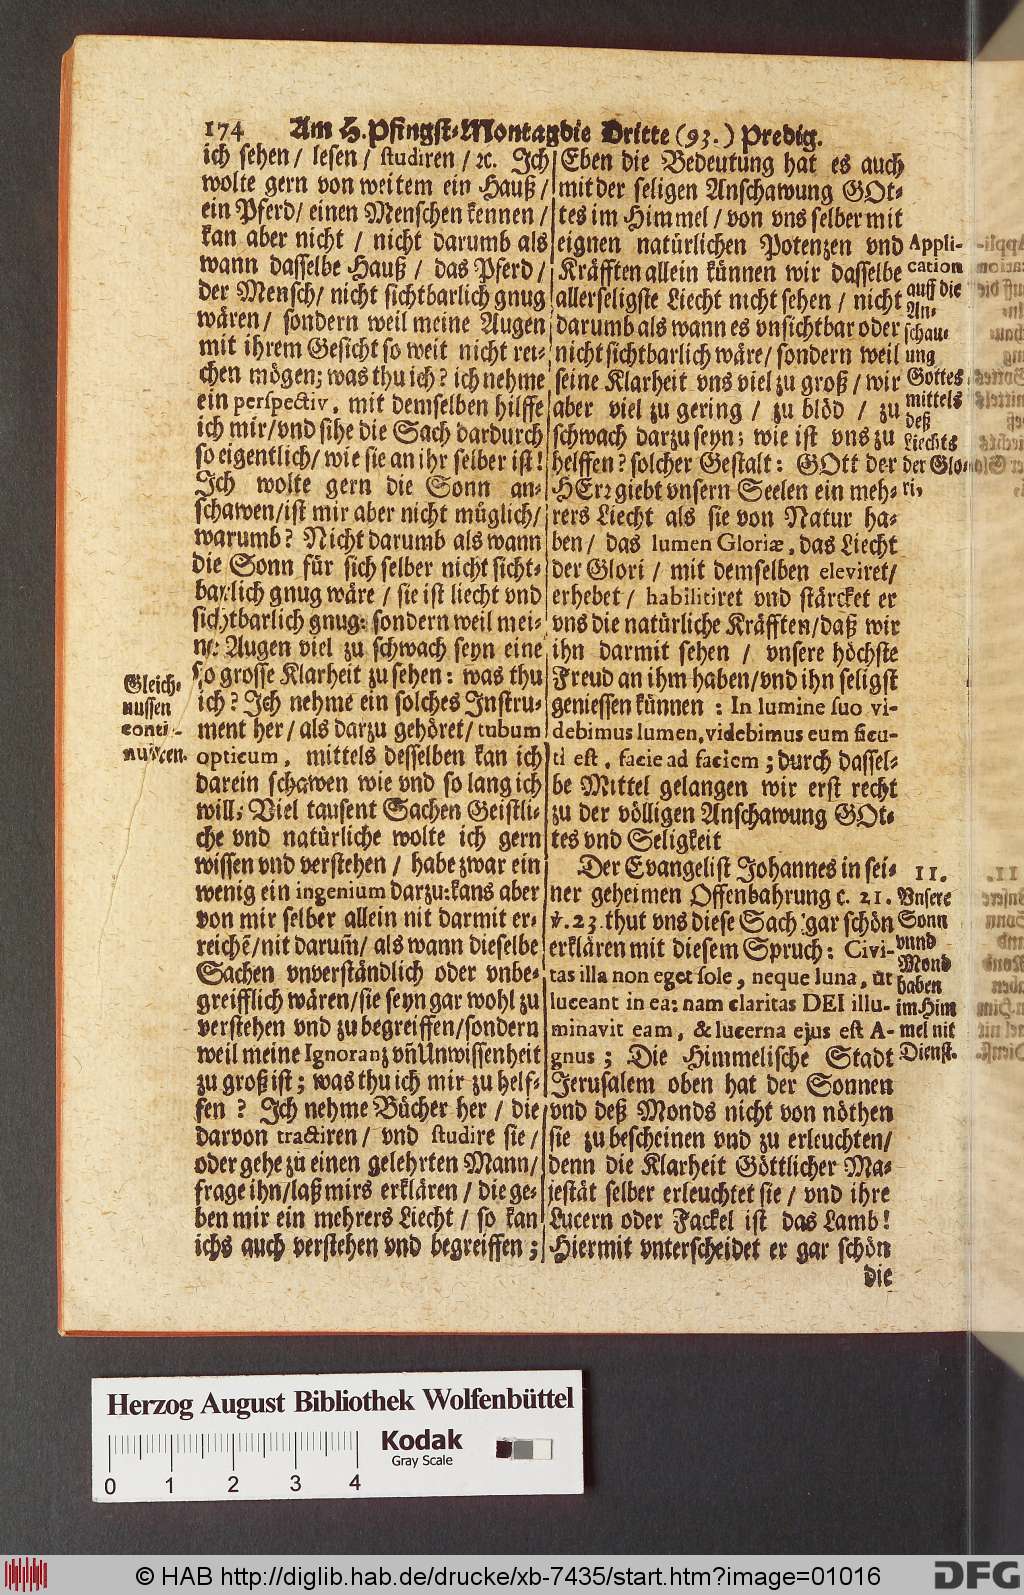 174 Am H. Pfingst-Montag die Dritte (93.) Predig.
ich sehen / lesen / studiren / ꝛc. Ich
wolte gern von weitem ein Hauß /
ein Pferd / einen Menschen kennen /
kan aber nicht / nicht darumb als
wann dasselbe Hauß / das Pferd /
der Mensch / nicht sichtbarlich gnug
wären / sondern weil meine Augen
mit ihrem Gesicht so weit nicht rei-
chen mögen; was thu ich? ich nehme
ein perspectiv, mit demselben hilffe
ich mir / vnd sihe die Sach dardurch
so eigentlich / wie sie an ihr selber ist!
Ich wolte gern die Sonn an-
schawen / ist mir aber nicht müglich /
warumb? Nicht darumb als wann
die Sonn für sich selber nicht sicht-
barlich gnug wäre / sie ist liecht vnd
sichtbarlich gnug: sondern weil mei-
ne Augen viel zu schwach seyn eine
so grosse Klarheit zu sehen: was thu
ich? Ich nehme ein solches Instru-
ment her / als darzu gehöret / tubum
opticum, mittels desselben kan ich
darein schawen wie vnd so lang ich
will; Viel tausent Sachen Geistli-
che vnd natürliche wolte ich gern
wissen vnd verstehen / habe zwar ein
wenig ein ingenium darzu: kans aber
von mir selber allein nit darmit er-
reichẽ / nit darum̃ / als wann dieselbe
Sachen vnverständlich oder vnbe-
greifflich wären / sie seyn gar wohl zu
verstehen vnd zu begreiffen / sondern
weil meine Ignoranz vñ Unwissenheit
zu groß ist; was thu ich mir zu helf-
fen? Ich nehme Bücher her / die
darvon tractiren / vnd studire sie /
oder gehe zu einen gelehrten Mann /
frage ihn / laß mirs erklären / die ge-
ben mir ein mehrers Liecht / so kan
ichs auch verstehen vnd begreiffen;
Gleich-
nussen
conti-
nuiren.
Eben die Bedeutung hat es auch
mit der seligen Anschawung GOt-
tes im Himmel / von vns selber mit
eignen natürlichen Potenzen vnd
Kräfften allein künnen wir dasselbe
allerseligste Liecht nicht sehen / nicht
darumb als wann es vnsichtbar oder
nicht sichtbarlich wäre / sondern weil
seine Klarheit vns viel zu groß / wir
aber viel zu gering / zu blöd / zu
schwach darzu seyn; wie ist vns zu
helffen? solcher Gestalt: GOtt der
HErꝛ giebt vnsern Seelen ein meh-
rers Liecht als sie von Natur ha-
ben / das lumen Gloriæ, das Liecht
der Glori / mit demselben eleviret /
erhebet / habilitiret vnd stärcket er
vns die natürliche Kräfften / daß wir
ihn darmit sehen / vnsere höchste
Freud an ihm haben / vnd ihn seligst
geniessen künnen: In lumine suo vi-
debimus lumen, videbimus eum sicu-
ti est, facie ad faciem; durch dassel-
be Mittel gelangen wir erst recht
zu der völligen Anschawung GOt-
tes vnd Seligkeit
Der Evangelist Johannes in sei-
ner geheimen Offenbahrung c. 21.
v. 23. thut vns diese Sach gar schön
erklären mit diesem Spruch: Civi-
tas illa non eget sole, neque luna, ut
luceant in ea: nam claritas DEI illu-
minavit eam, & lucerna ejus est A-
gnus; Die Himmelische Stadt
Jerusalem oben hat der Sonnen
vnd deß Monds nicht von nöthen
sie zu bescheinen vnd zu erleuchten /
denn die Klarheit Göttlicher Ma-
jestät selber erleuchtet sie / vnd ihre
Lucern oder Fackel ist das Lamb!
Hiermit vnterscheidet er gar schön
die
Appli-
cation
auff die
An-
schau-
ung
Gottes
mittels
deß
Liechts
der Glo-
ri,
11.
Vnsere
Sonn
vnnd
Mond
haben
im Him
mel nit
Dienst.
Herzog August Bibliothek Wolfenbüttel
Kodak
Gray Scale
0 1 2 3 4
© HAB http://diglib.hab.de/drucke/xb-7435/start.htm?image=01016
DFG